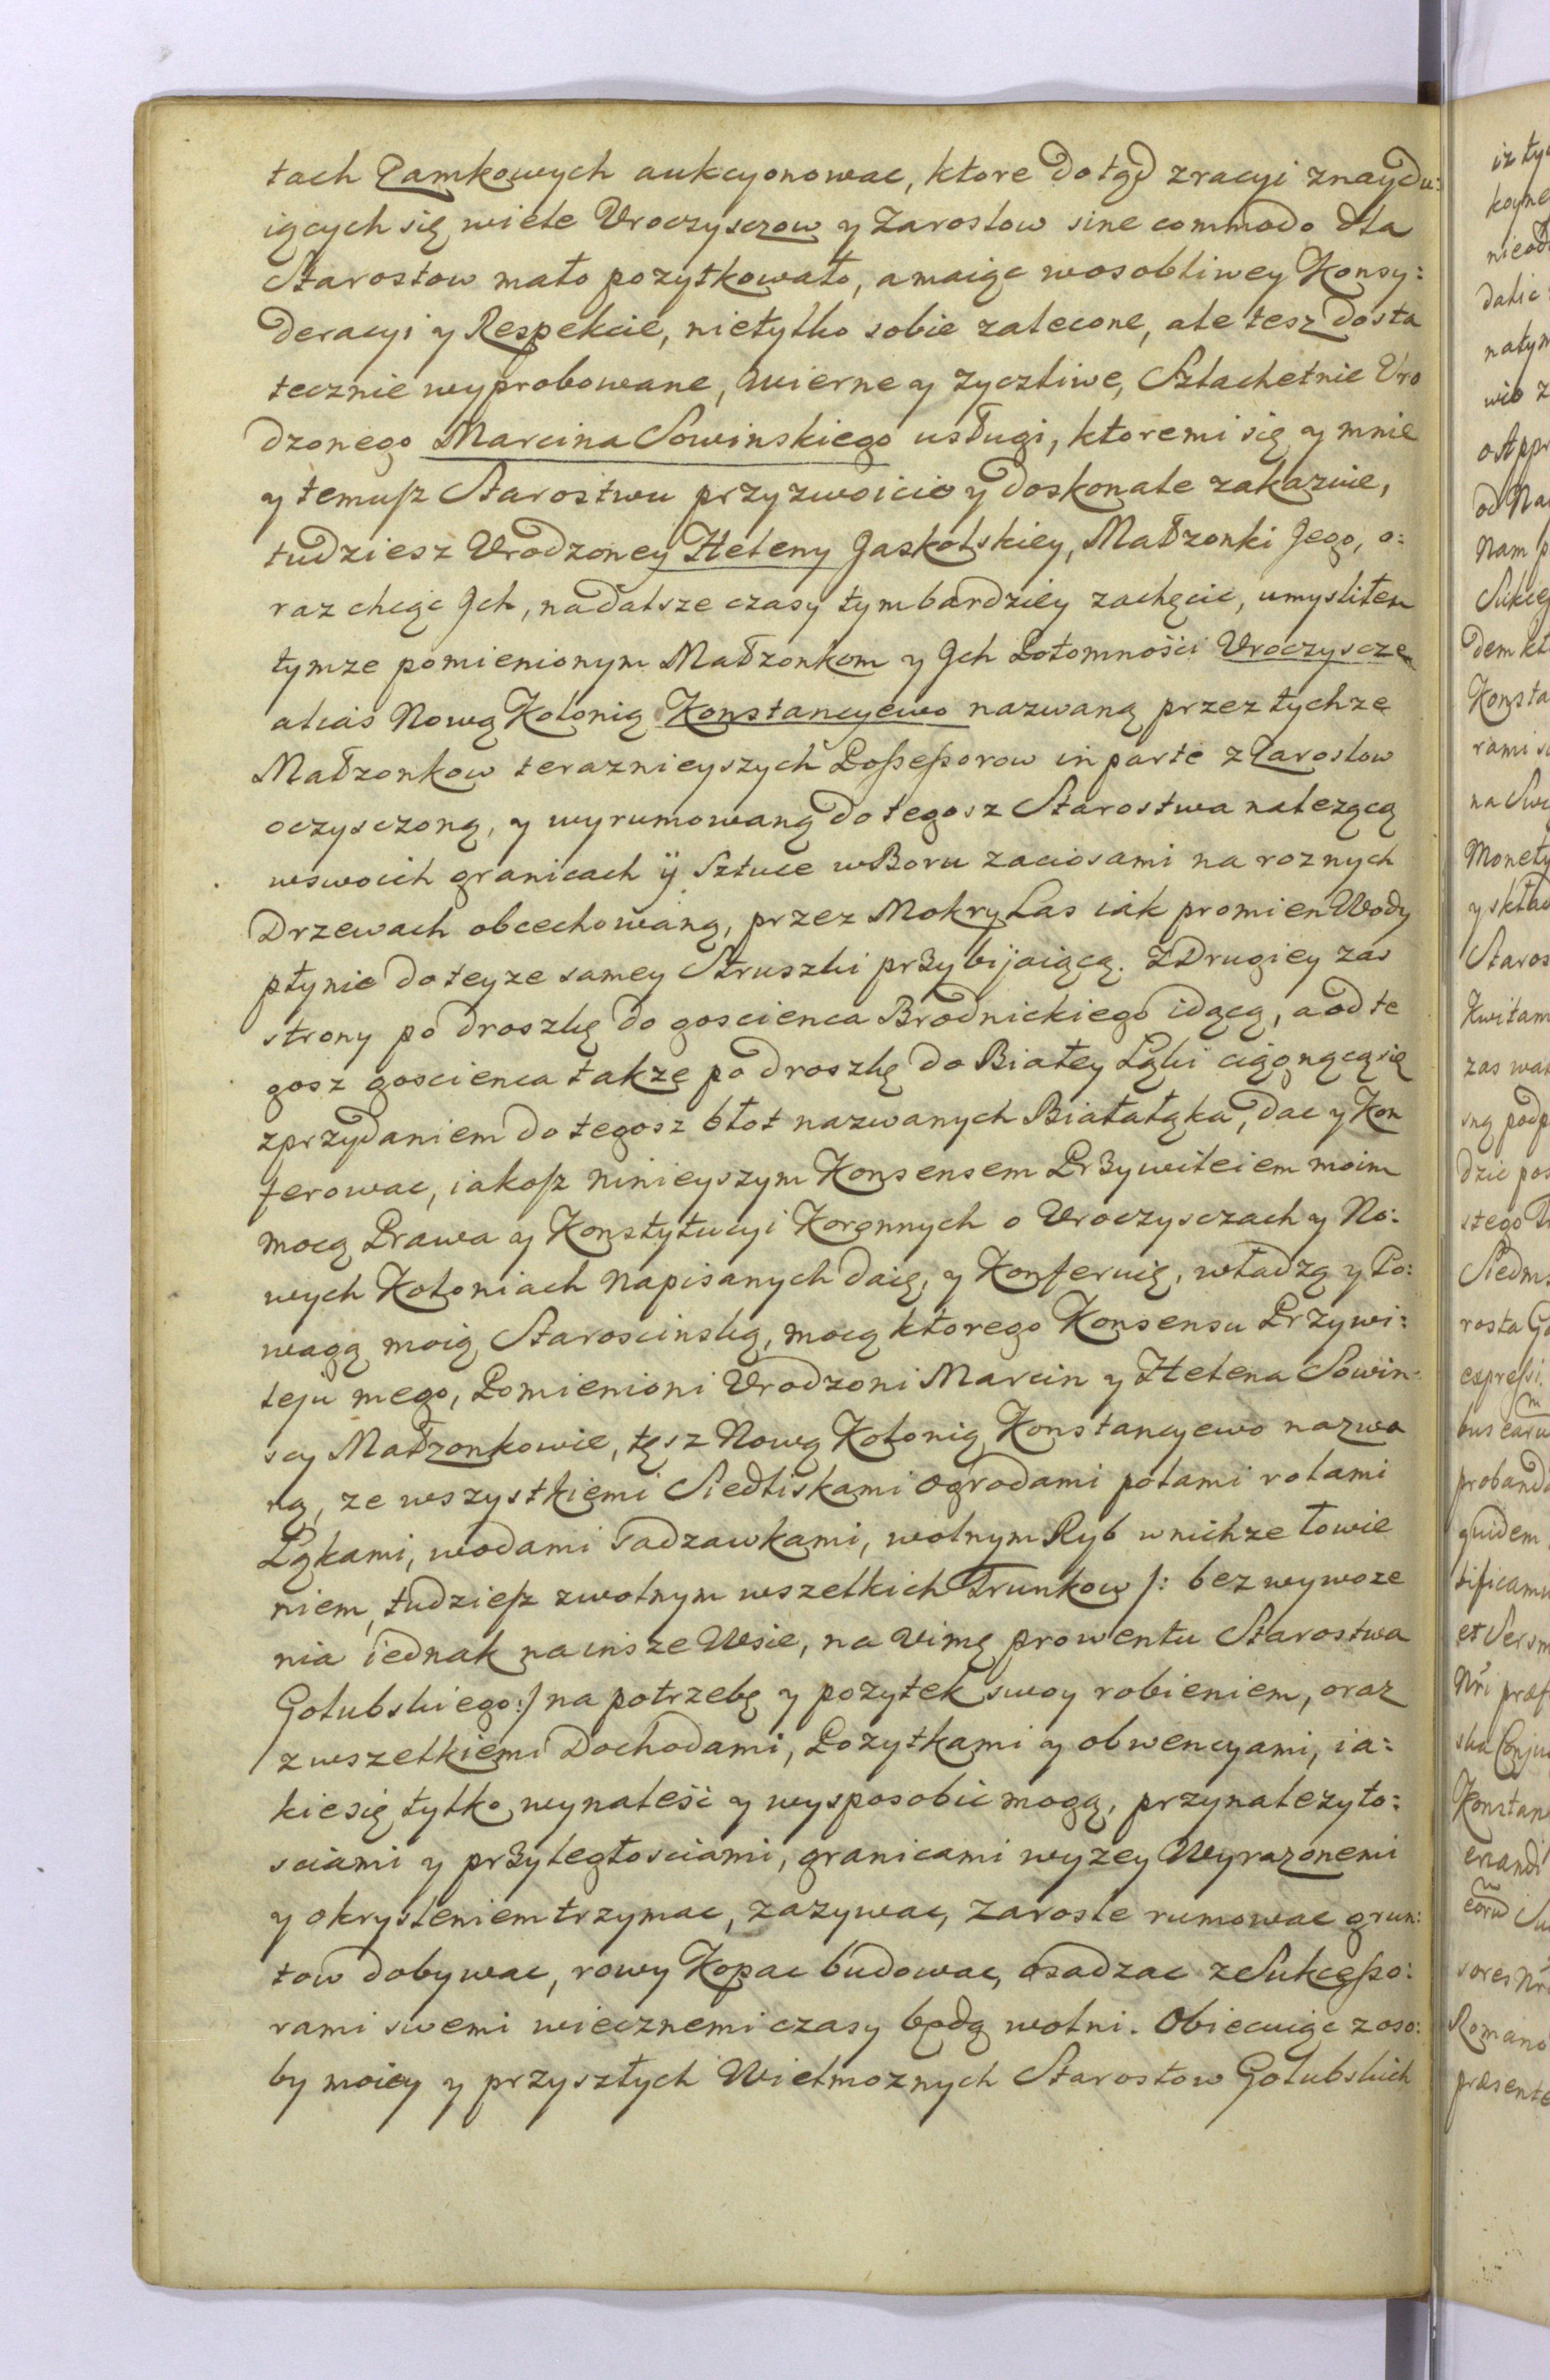 tach Zamkowych aukcyonowac, ktore dotąd zracyi znaydu:
iących się wiele Vroczysczow y Zaroslow sine commodo dla
Starostow mało pozytkowało, a maiąc wosobliwey Konsy:
deracyi y Respekcie, nietylko sobie zalecone, ale tesz dosta
tecznie wyprobowane, wierne y zyczliwe, Szlachetnie Vro
dzonego Marcina Sowinskiego usługi, ktoremi się y mnie
y temuſz Starostwu przyzwoicie y doskonale zakazuie,
tudziesz Vrodzoney Heleny Jaskolskiey, Małzonki Jego, o:
raz chcąc Jch, nadalsze czasy tymbardziey zachęcic, umysliłem
tymze pomienionym Małzonkom y Jch Potomności Vroczyscze
alias Nową Kolonią Konstancyewo nazwaną przez tychze
Małzonkow teraznieyszych Poſseſsorow in parte z Zaroslow
oczysczoną, y wyrumowaną do tegosz Starostwa nalezącą
wswoich granicach ÿ Sztuce wBoru zaciosami na roznych
Drzewach obcechowaną, przez Mokry Las iak promien Wody
płynie do teyze samey Struszki przybijaiącą. Z Drugiey zas
strony po droszkę do goscienca Brodnickiego idącą, a od te
gosz goscienca takze po droszkę do Białey Łąki ciągnącąsię
zprzydaniem do tegosz błot nazwanych Białałąka, dac y Kon
ferowac, iakoſz ninieyszym Konsensem Przywileiem moim
mocą Prawa y Konstytucyi Koronnych o Vroczysczach y No:
wych Koloniach napisanych daię, y Konferuię, władzą y Po:
wagą moią Starościnską, mocą ktorego Konsensu Przywi:
leju mego, Pomienioni Vrodzoni Marcin y Helena Sowin:
scy Małzonkowie, tęsz Nową Kolonią Konstancyewo nazwa
ną, ze wszystkiemi Siedliskami ogrodami polami rolami
Łąkami, wodami sadzawkami, wolnym Ryb wnichze łowie
niem, tudzieſz zwolnym wszelkich Trunkow /: bez wywoze
nia iednak na insze Wsie, na Vimę prowentu Starostwa
Golubskiego :/ na potrzebę y pozytek swoy robieniem, oraz
zwszelkiemi Dochodami, Pozytkami y obwencyami, ia:
kiesię tylko wynaleść y wysposobic mogą, przynalezyto:
sciami y przyległosciami, granicami wyzey Wyrazonemi
y okrysleniem trzymac, zazywac, zarosle rumowac grun:
tow dobywac, rowy Kopac budowac, osadzac zSukceſso:
rami swemi wiecznemi czasy będą wolni. Obiecuiąc z oso:
by moiey y przyszłych Wielmoznych Starostow Golubskich